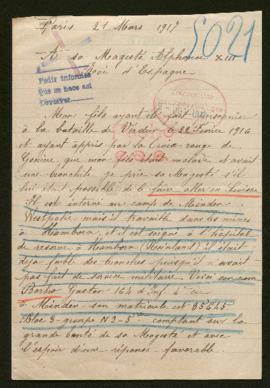 Paris 21 Mars 1917
5021
A sa Majesté Alphonse XIII
Roi d'Espagne
Pedir informes
que se hace así
Mon fils ayant été fait prisonnier
à la bataille de Verdun le 22 Février 1916
et ayant appris par la Croix rouge de
Genève, que mon fils était malade il avait
une bronchite, je prie sa Majesté s'il
lui était possible de le faire aller en Suisse
Il est interné au camp de Minden
Westphalie mais il travaille dans les mines
à Hamborn, et il est soigné à l'hôpital
de réserve à Hamborn (Reinland) il était
déjà faible des bronches puisqu'il n'avait
pas fait de service militaire. Voici son nom
Gaston 164 d'Inf
à Minden son matricule est
Bloc 3 groupe N 2 comptant sur la
grande bonté de sa Majesté et avec
l'espoir d'une réponse favorable